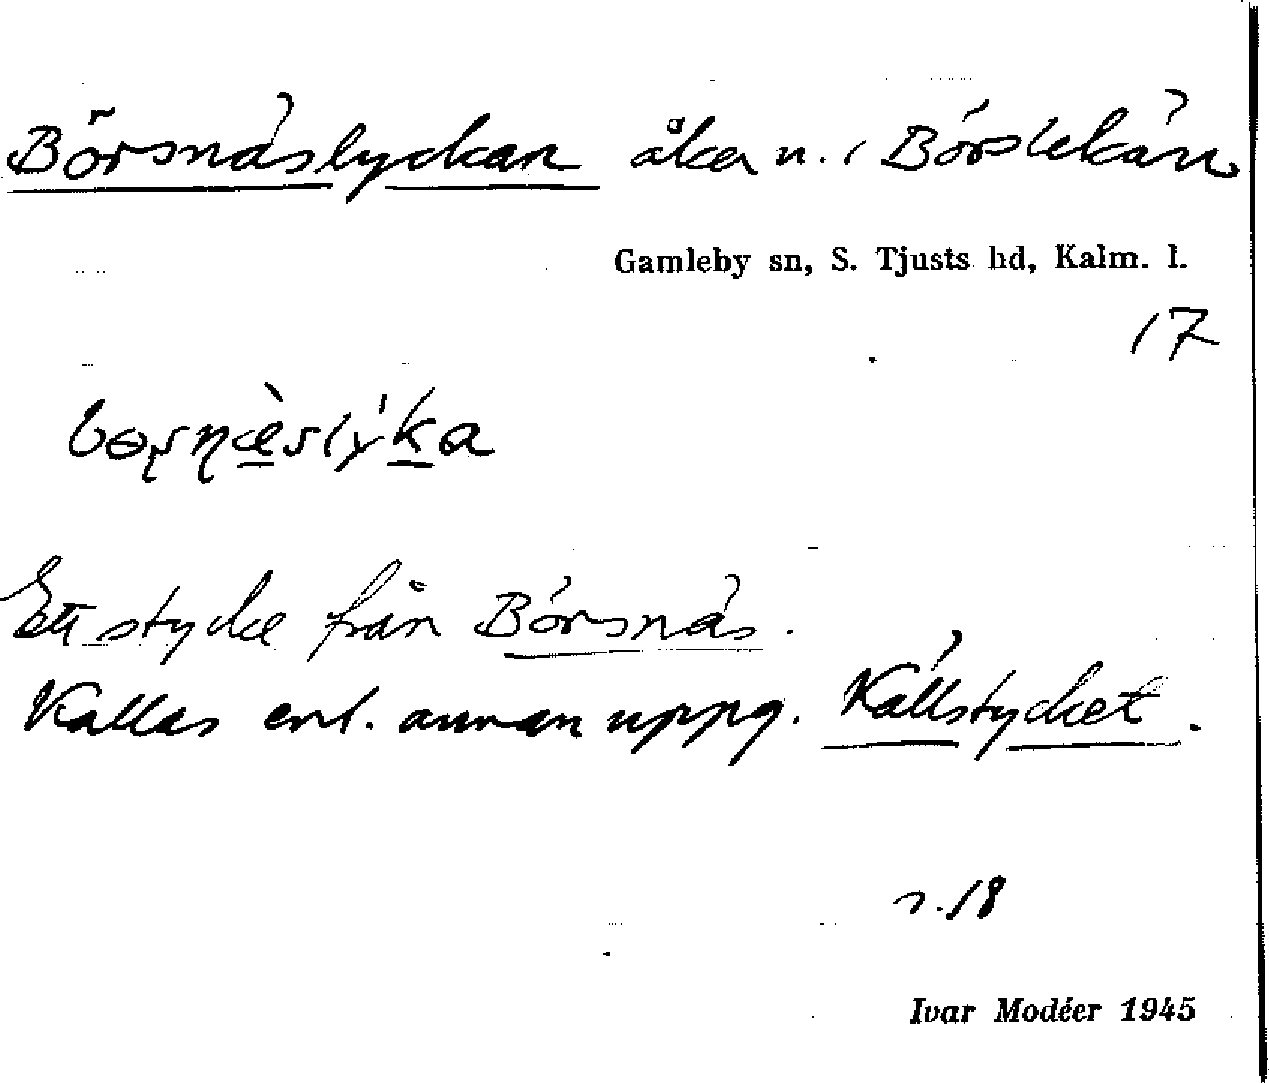 Börsnäslyckan åker n. i Börstekärr
Gamleby sn, S. Tjusts hd, Kalm. l.
17
Ett stycke från Börsnäs.
Kallas enl. annan uppg. Källstycket.
s. 18
Ivar Modéer 1945